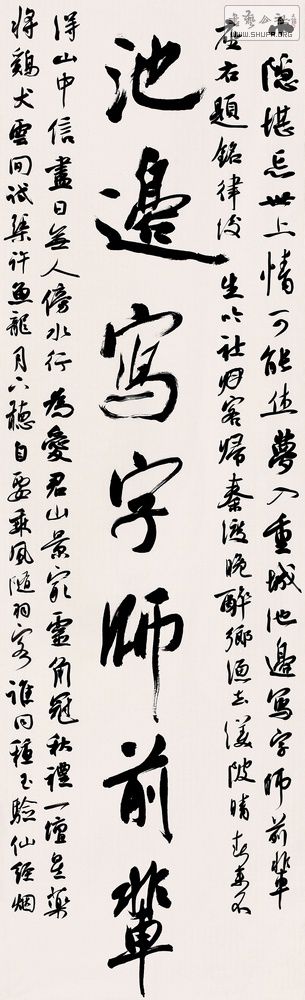 書藝公社
WWW.SHUFA.ORG
隱堪忘世上情可能佳夢入重城池邊寫字師前輩
座右題銘律後生吟社客歸秦渡晚醉鄉漁去渼陂晴春來不
池邊寫字師前輩
得山中信盡日無人傍水行為愛君山景最靈角冠秋禮一壇星藥
將鷄犬雲間試琴許魚龍月下聽自要乘風隨羽客誰同種玉驗仙經烟